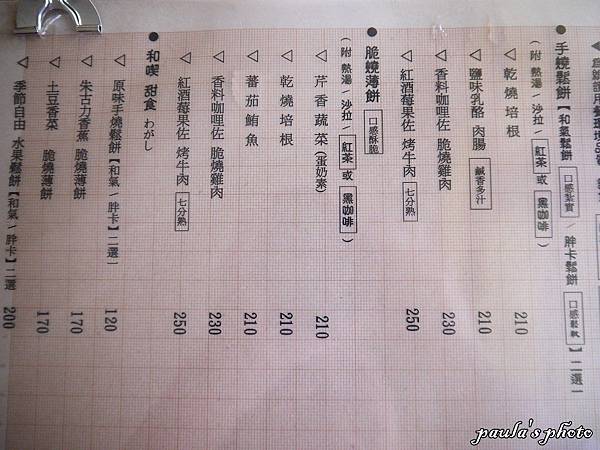 手燒鬆餅【和氣鬆餅 口感紮實 / 胖卡鬆餅 口感鬆軟 】二選一
( 附 熱湯 / 沙拉 / 紅茶 或 黑咖啡 )
◁ 乾燒培根 210
◁ 鹽味乳酪 肉腸 鹹香多汁 210
◁ 香料咖哩佐 脆燒雞肉 230
◁ 紅酒莓果佐 烤牛肉 七分熟 250
● 脆燒薄餅 口感酥脆
( 附 熱湯 / 沙拉 / 紅茶 或 黑咖啡 )
◁ 芹香蔬菜 (蛋奶素) 210
◁ 乾燒培根 210
◁ 蕃茄鮪魚 210
◁ 香料咖哩佐 脆燒雞肉 230
◁ 紅酒莓果佐 烤牛肉 七分熟 250
● 和喫 甜食 わがし
◁ 原味手燒鬆餅【和氣 / 胖卡】二選一 120
◁ 朱古力香蕉 脆燒薄餅 170
◁ 土豆香菜 脆燒薄餅 170
◁ 季節自由 水果鬆餅【和氣 / 胖卡】二選 200
paula's photo